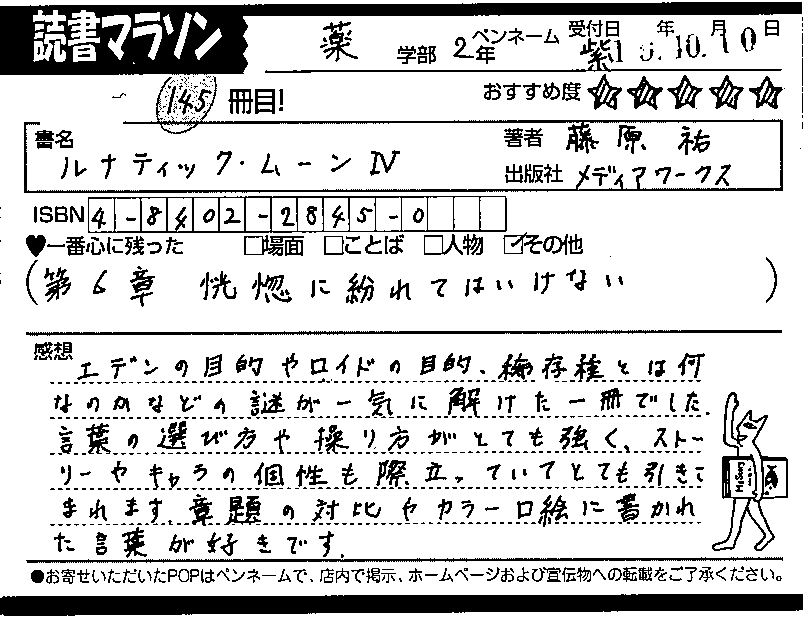 読書マラソン
薬 学部 2年 ペンネーム 紫 受付日 年 月 日
10.10
145 冊目! おすすめ度 ☆☆☆☆☆
書名 ルナティック・ムーンⅣ
著者 藤原 祐
出版社 メディアワークス
ISBN 4-8402-2845-0
♥一番心に残った □場面 □ことば □人物 ☑その他
(第6章 恍惚に紛れてはいけない)
感想
エデンの目的やロイドの目的、稀存種とは何
なのかなどの謎が一気に解けた一冊でした。
言葉の選び方や操り方がとても強く、ストー
リーやキャラの個性も際立っていてとても引きこ
まれます。章題の対比やカラー口絵に書かれ
た言葉が好きです。
History
●お寄せいただいたPOPはペンネームで、店内で掲示、ホームページおよび宣伝物への転載をご了承ください。